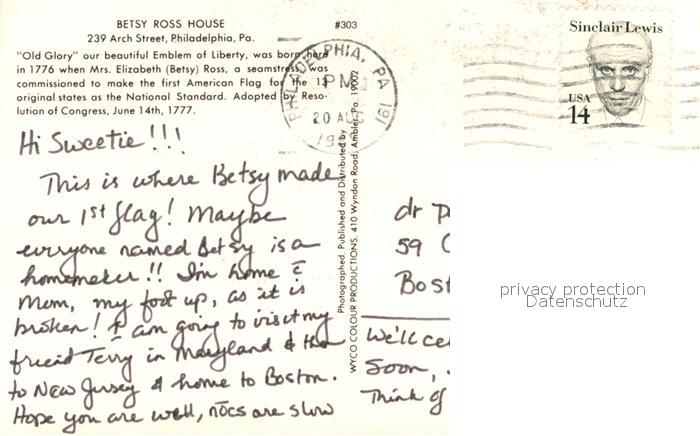 BETSY ROSS HOUSE
239 Arch Street, Philadelphia, Pa.
#303
"Old Glory" our beautiful Emblem of Liberty, was born here
in 1776 when Mrs. Elizabeth (Betsy) Ross, a seamstress was
commissioned to make the first American Flag for the 13
original states as the National Standard. Adopted by Reso-
lution of Congress, June 14th, 1777.
PHILADELPHIA, PA 191
PM
20 AUG
19
Sinclair Lewis
USA
14
Hi Sweetie!!!
This is where Betsy made
our 1st flag! Maybe
everyone named Betsy is a
homemaker!! I'm home c̄
Mom, my foot up, as it is
broken! I am going to visit my
friend Terry in Maryland & then
to New Jersey & home to Boston.
Hope you are well, nocs are slow
Photographed, Published and Distributed by
WYCO COLOUR PRODUCTIONS, 410 Wyndon Road, Ambler, Pa. 19002
dr
59
Bost
We'll cel
soon,
Think of
privacy protection
Datenschutz